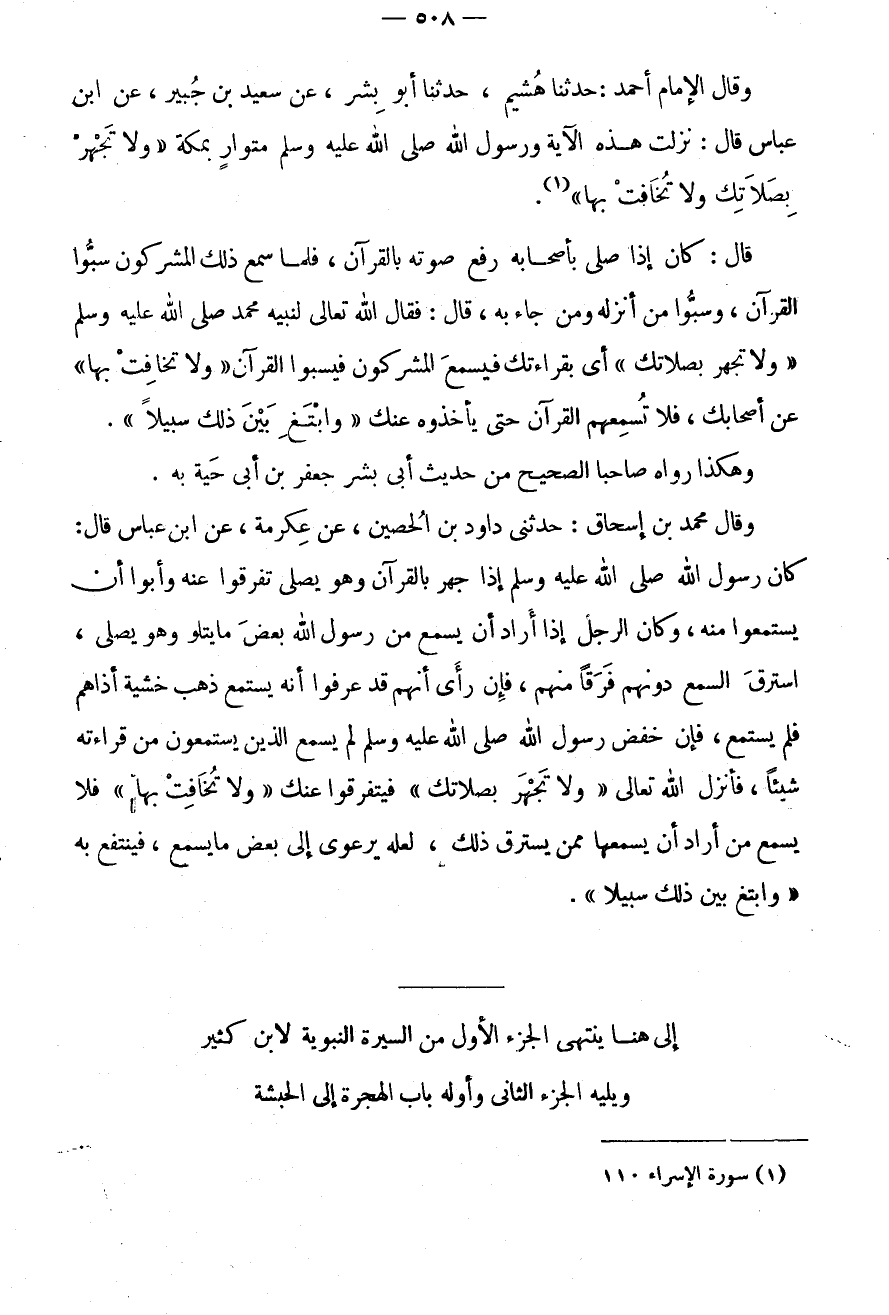 — ٥٠٨ —
وقال الإمام أحمد : حدثنا هُشيم ، حدثنا أبو بِشر ، عن سعيد بن جُبير ، عن ابن
عباس قال : نزلت هــذه الآية ورسول الله صلى الله عليه وسلم متوارٍ بمكة « ولا تَجْهرْ
بِصَلاَتِك ولا تُخَافتْ بها »(١).
قال : كان إذا صلى بأصحــابه رفع صوته بالقرآن ، فلمــا سمع ذلك المشركون سبُّوا
القرآن ، وسبُّوا من أنزله ومن جاء به ، قال : فقال الله تعالى لنبيه محمد صلى الله عليه وسلم
« ولا تجهر بصلاتك » أى بقراءتك فيسمعَ المشركون فيسبوا القرآن « ولا تخافِتْ بها »
عن أصحابك ، فلا تُسمِعهم القرآن حتى يأخذوه عنك « وابْتَـغِ بَيْنَ ذلك سبيلاً » .
وهكذا رواه صاحبا الصحيح من حديث أبى بشر جعفر بن أبى حَية به .
وقال محمد بن إسحاق : حدثنى داود بن الُحصين ، عن عِكرمة ، عن ابن عباس قال :
كان رسول الله صلى الله عليه وسلم إذا جهر بالقرآن وهو يصلى تفرقوا عنه وأبوا أن
يستمعوا منه ، وكان الرجلُ إذا أراد أن يسمع من رسول الله بعضَ مايتلو وهو يصلى ،
استرقَ السمع دونهم فَرَقاً منهم ، فإن رأَى أنهم قد عرفوا أنه يستمع ذهب خشية أذاهم
فلم يستمع ، فإن خفض رسول الله صلى الله عليه وسلم لم يسمع الذين يستمعون من قراءته
شيئاً ، فأنزل الله تعالى « ولا تَجْهَرَ بصلاتك » فيتفرقوا عنك « ولا تُخَافِتْ بها » فلا
يسمع من أراد أن يسمعها ممن يسترق ذلك ، لعله يرعوى إلى بعض مايسمع ، فينتفع به
« وابتغ بين ذلك سبيلا » .
إلى هنــا ينتهى الجزء الأول من السيرة النبوية لابن كثير
ويليه الجزء الثانى وأوله باب الهجرة إلى الحبشة
(١) سورة الإسراء ١١٠